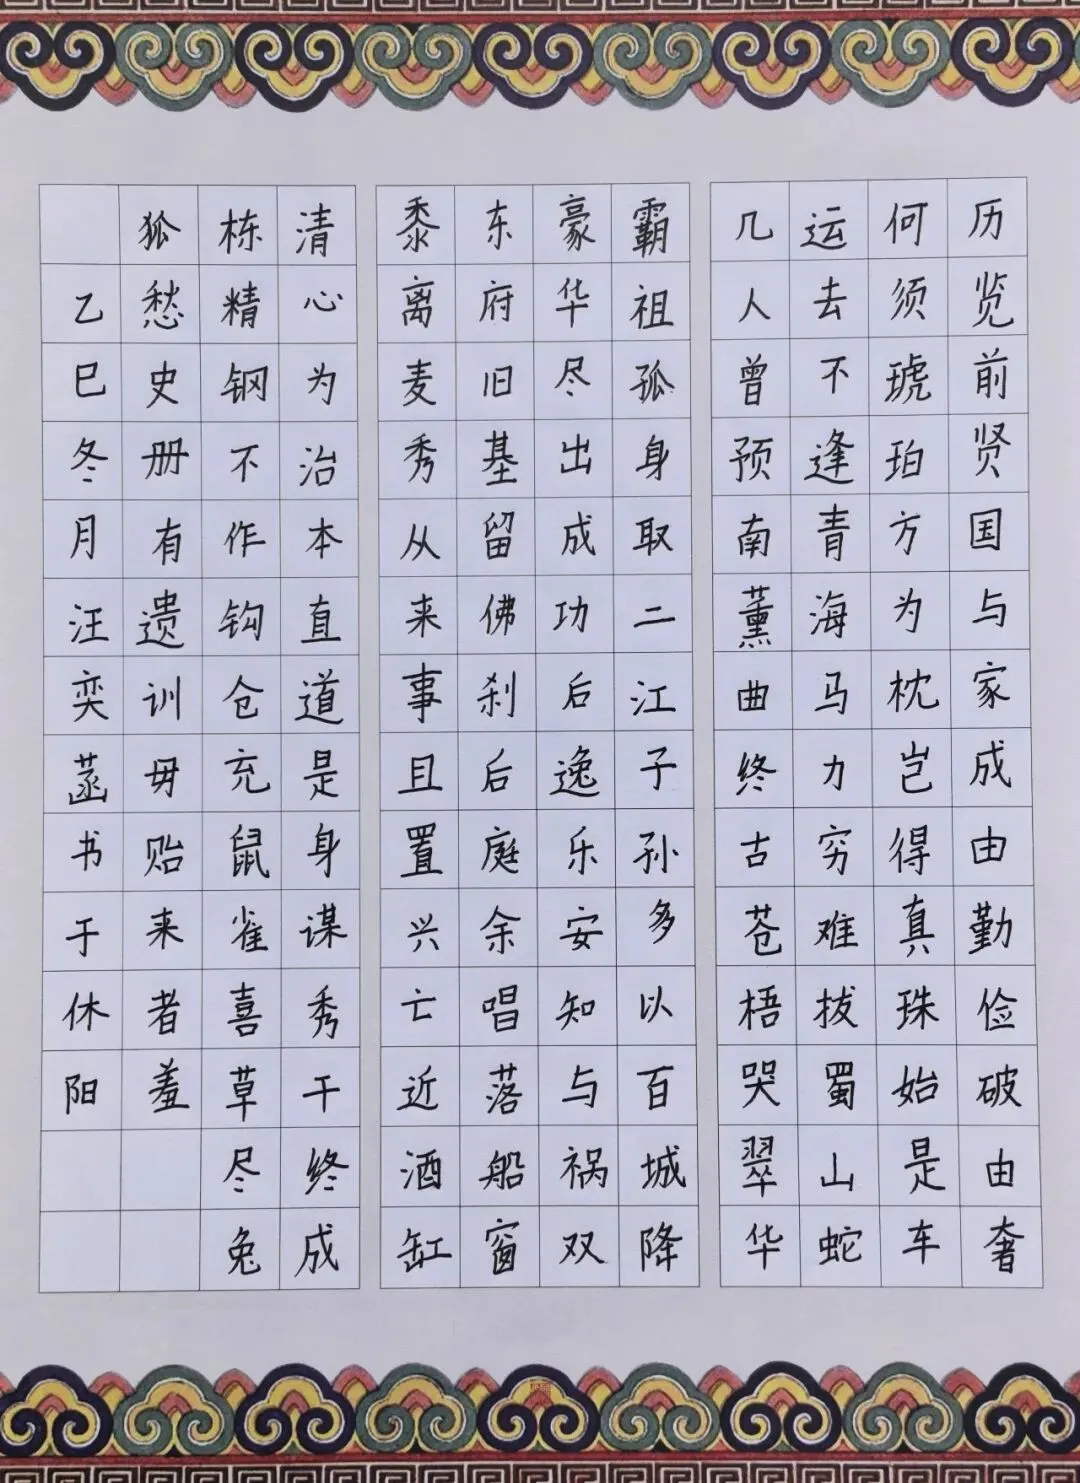 历览前贤国与家成由勤俭破由奢
何须琥珀方为枕岂得真珠始是车
运去不逢青海马力穷难拔蜀山蛇
几人曾预南薰曲终古苍梧哭翠华
霸祖孤身取二江子孙多以百城降
豪华尽出成功后逸乐安知与祸双
东府旧基留佛刹后庭余唱落船窗
黍离麦秀从来事且置兴亡近酒缸
清心为治本直道是身谋秀干终成
栋精钢不作钩仓充鼠雀喜草尽兔
狐愁史册有遗训毋贻来者羞
乙巳冬月汪奕菡书于休阳